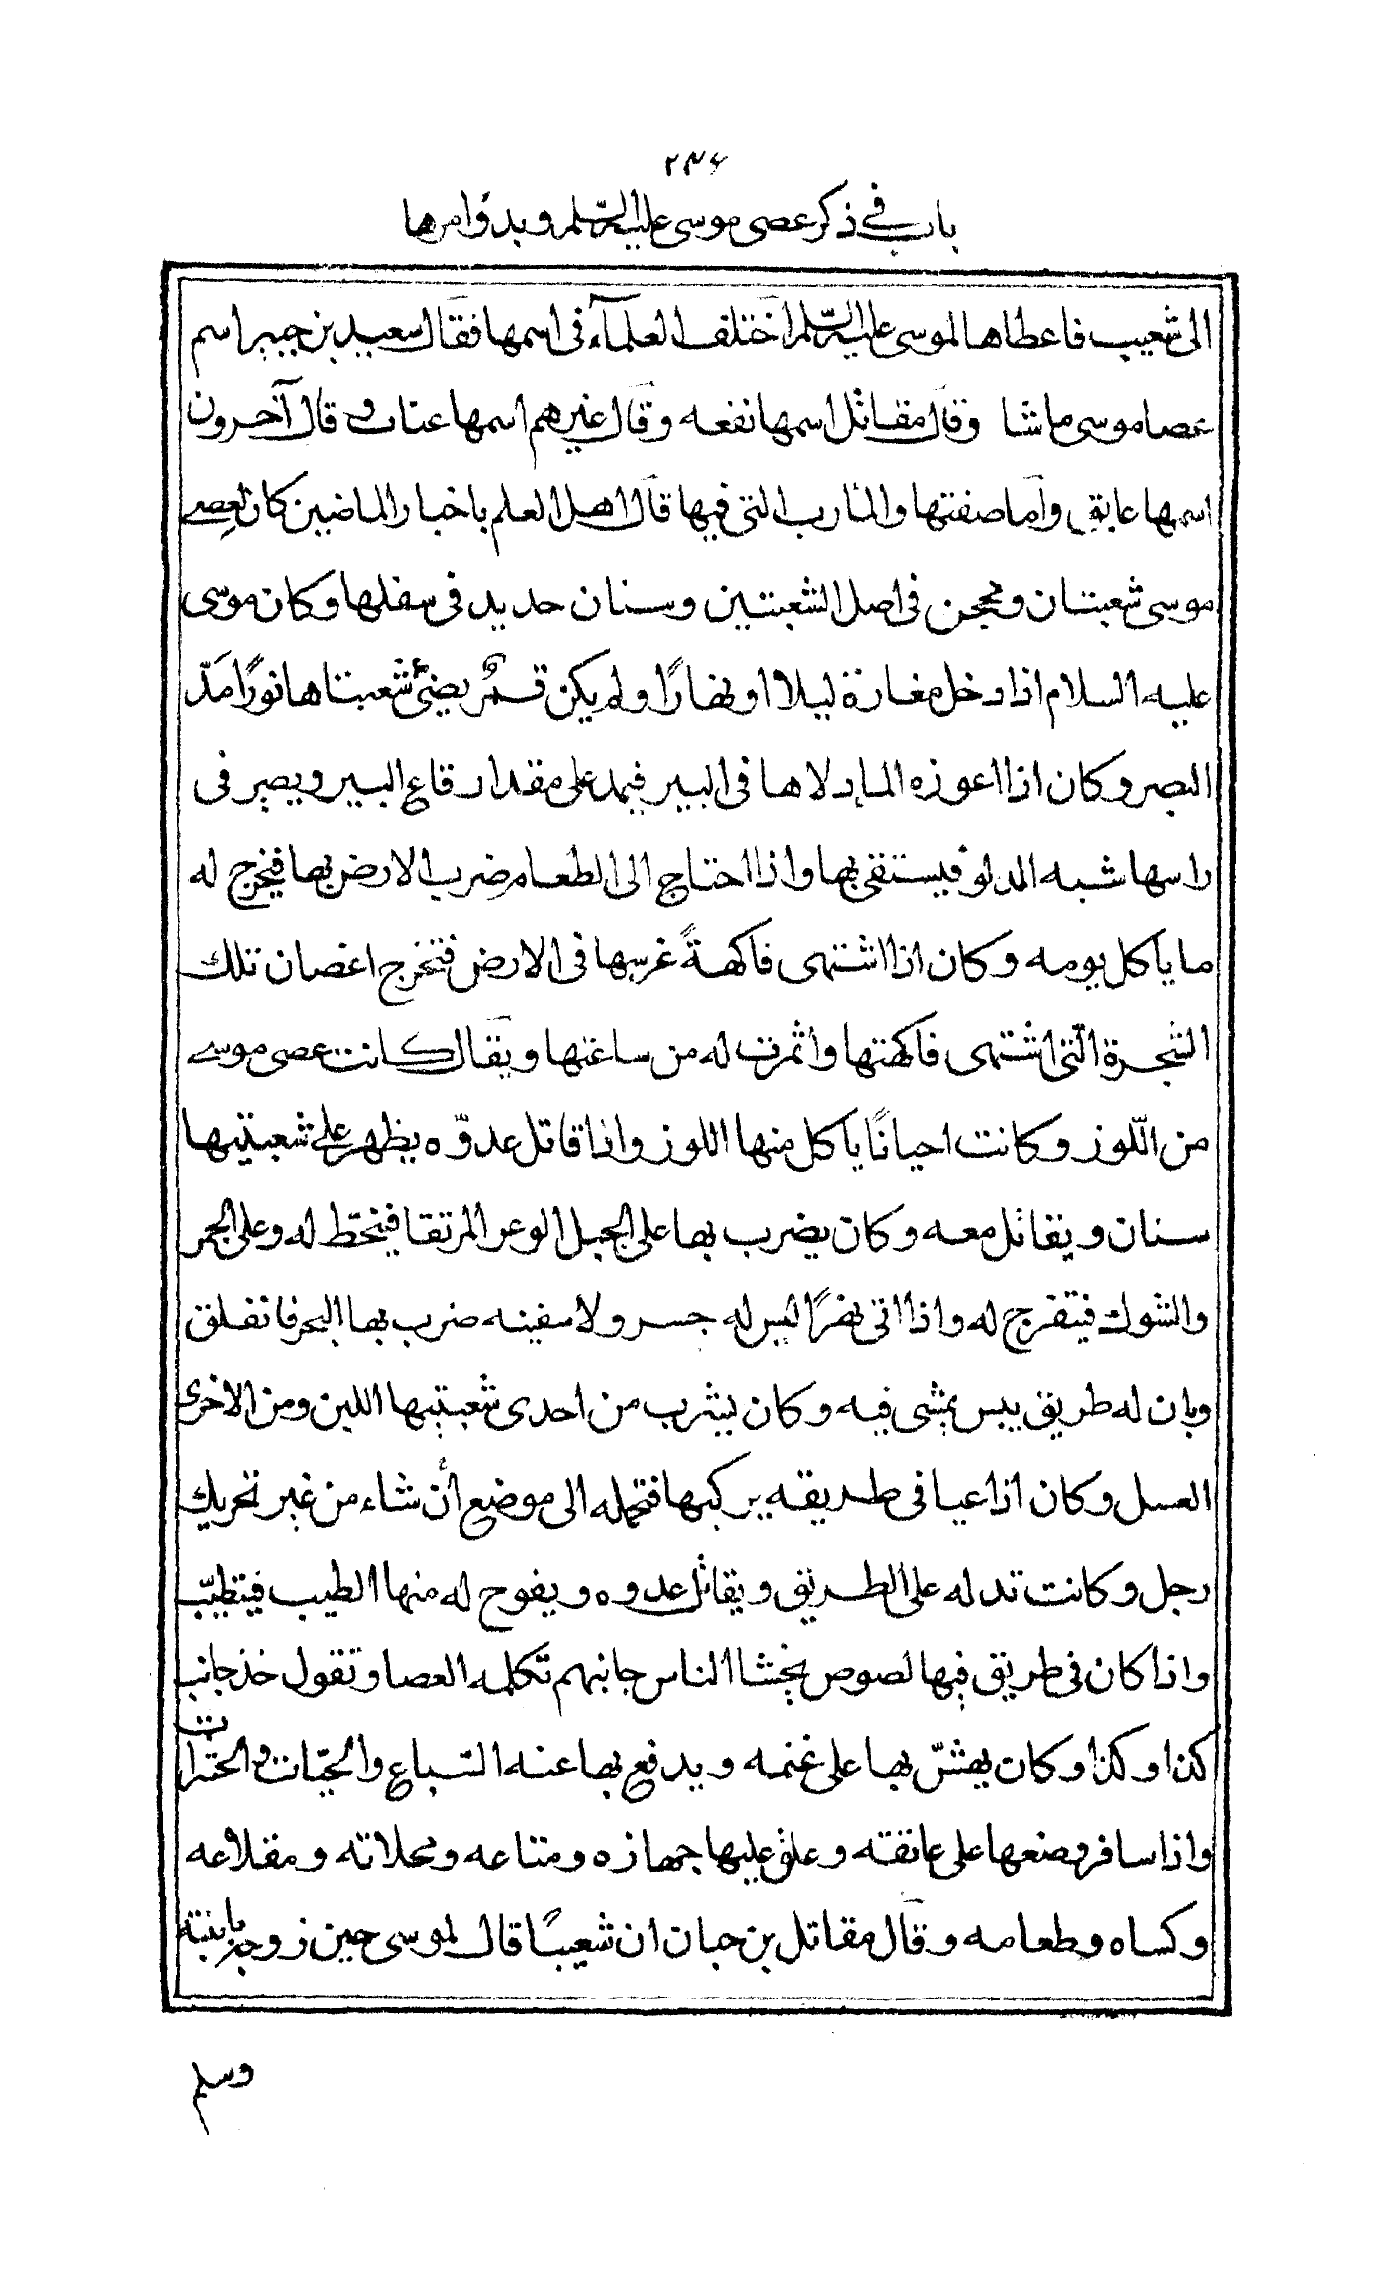 ٢٣٦
باب في ذكر عصى موسى عليه السّلم وبدؤ امرها
الى شعيب فاعطاها لموسى عليه السّلم اختلف العلمآء فى اسمها فقال سعيد بن جبير اسم
عصا موسى ماشا وقال مقاتل اسمها نفعه وقال غيرهم اسمها عناث و قال آخرون
اسمها عابق وأما صفتها والمارب التى فيها قال اهل العلم باخبار الماضين كان لعصى
موسى شعبتان ومحجن فى اصل الشعبتين وسنان حديد فى سفلها وكان موسى
عليه السلام اذا دخل مغارة ليلا او نهارًا ولم يكن قمرٌ يضئ شعبتاها نورًا مَدّ
البصر وكان اذا اعوزه الماء دلاها فى البير فيمد على مقدار قاع البير ويصير فى
راسها شبه الدلو فيستقى بها واذا احتاج الى الطعام ضرب الارض بها فيخرج له
ما ياكل يومه وكان اذا اشتهى فاكهةً غرسها فى الارض فتخرج اغصان تلك
الشجرة الّتى اشتهى فاكهتها واثمرت له من ساعتها ويقال كانت عصى موسى
من اللّوز وكانت احيانًا ياكل منها اللوز واذا قاتل عدوّه يظهر على شعبتيها
سنان ويقاتل معه وكان يضرب بها على الجبل الوعر المرتقا فينحّط له وعلى الجمر
والشوك فيتفرج له واذا اتى نهرًا ليس له جسر ولا سفينه ضرب بها البحر فانفلق
وبان له طريق يبس يمشى فيه وكان يشرب من احدى شعبتيها اللبن ومن الاخرى
العسل وكان اذا عيا فى طريقه يركبها فتحمله الى موضع أن شاء من غير تحريك
رجل وكانت تدله على الطريق ويقاتل عدوه ويفوح له منها الطيب فيتطيّب
واذا كان فى طريق فيها لصوص يخشا الناس جانبهم تكلمه العصا وتقول خذ جانب
كذا وكذا وكان يهشّ بها على غنمه ويدفع بها عنه السّباع والحيّات والحشرات
واذا سافر وضعها على عاتقته وعلق عليها جهازه ومتاعه ومخلاته ومقلاعه
وكساه وطعامه وقال مقاتل بن حبان ان شعيبًا قال لموسى حين زوجه بابنته
وسلم